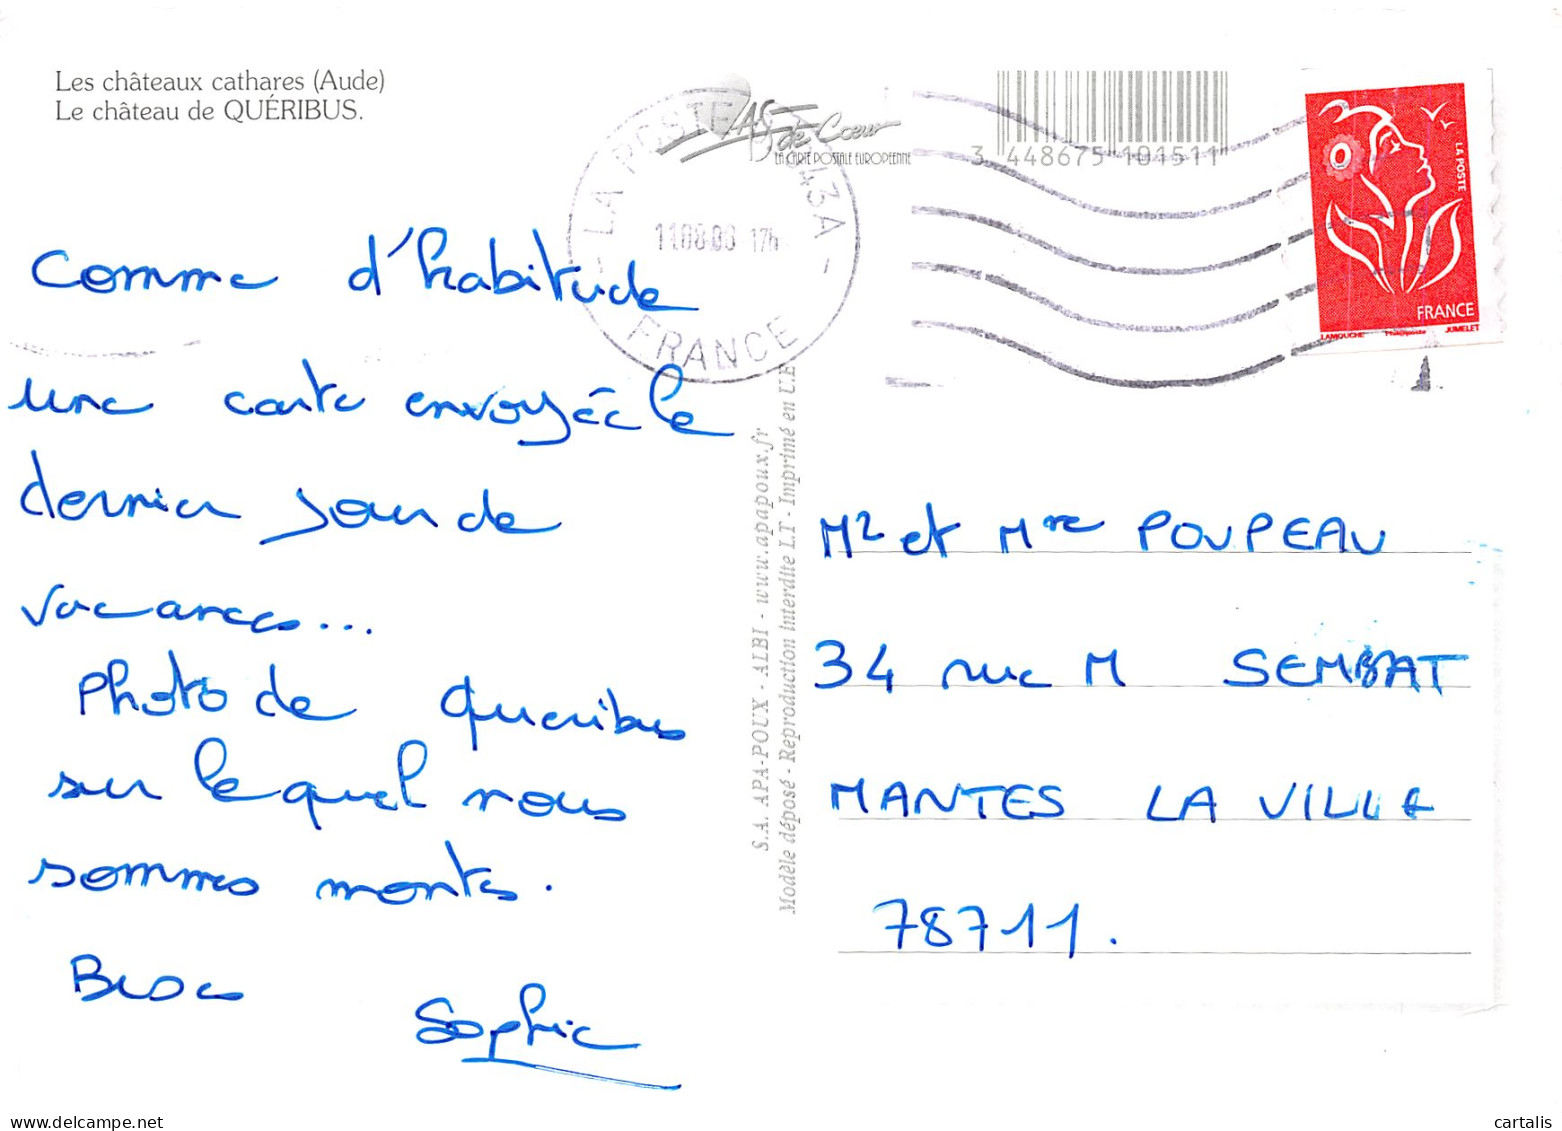 Les châteaux cathares (Aude)
Le château de QUÉRIBUS.
AS de Cœur
LA CARTE POSTALE EUROPÉENNE
3 448675 101511
LA POSTE
43A
11.08.06 17h
FRANCE
LA POSTE
FRANCE
LAMOUCHE Phil@poste JUMELET
Comme d'habitude
une carte envoyée le
dernier jour de
vacances...
Photo de Queribus
sur lequel nous
sommes montés.
Sophie
S.A. APA-POUX - ALBI - www.apapoux.fr
Modèle déposé - Reproduction interdite L.T - Imprimé en U.E
Mr et Mme POUPEAU
34 rue M SEMBAT
MANTES LA VILLE
78711.
cartalis